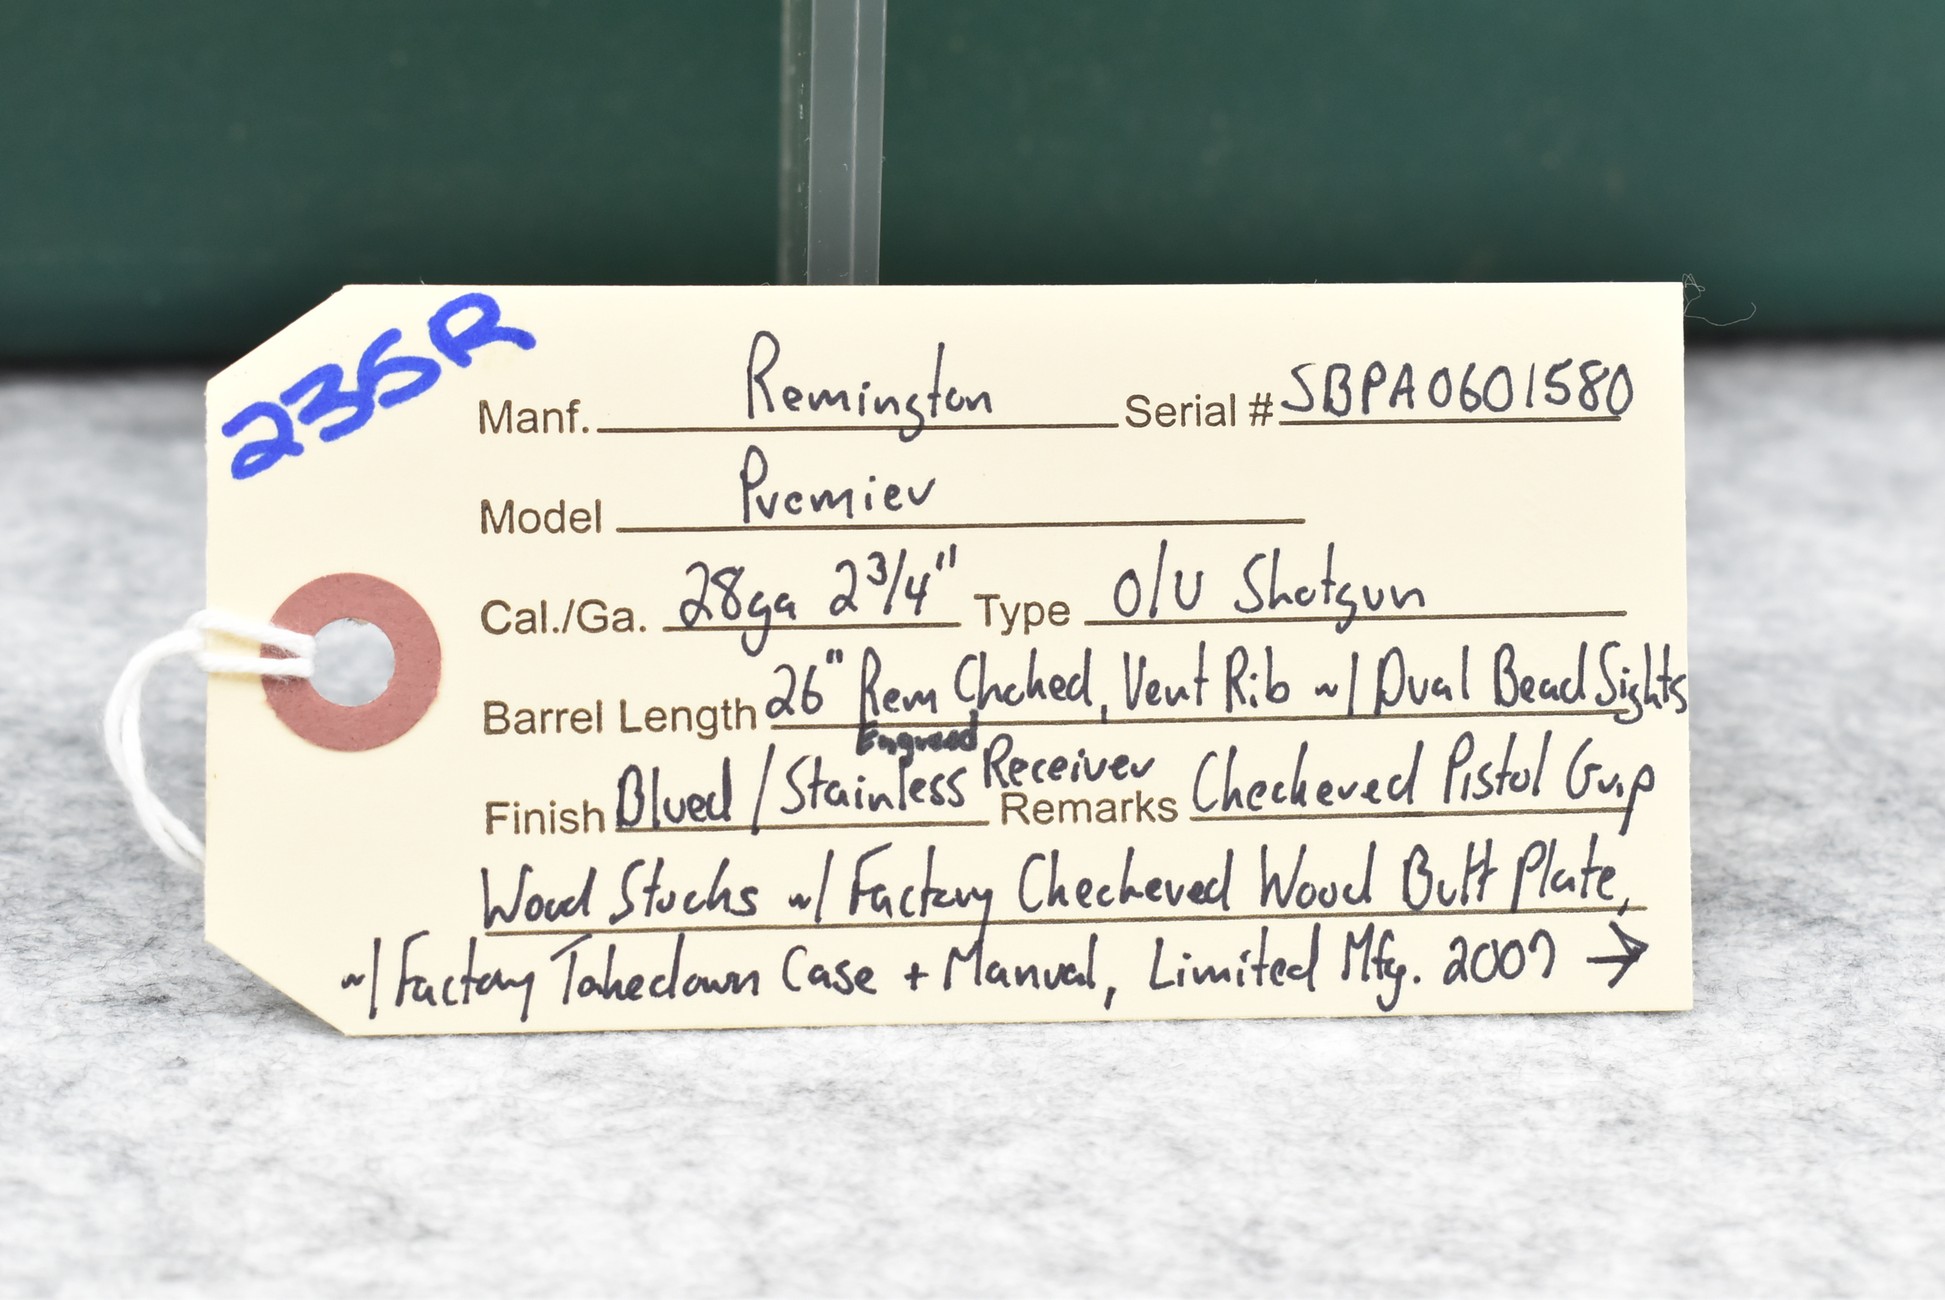 235R
Manf. Remington Serial # SBPA0601580
Model Premier
Cal./Ga. 28ga 2 3/4" Type O/U Shotgun
Barrel Length 26" Rem Choked, Vent Rib w/ Dual Bead Sights
Engraved
Finish Blued / Stainless Receiver Remarks Checkered Pistol Grip
Wood Stocks w/ Factory Checkered Wood Butt Plate,
w/ Factory Takedown Case + Manual, Limited Mfg. 2007 →